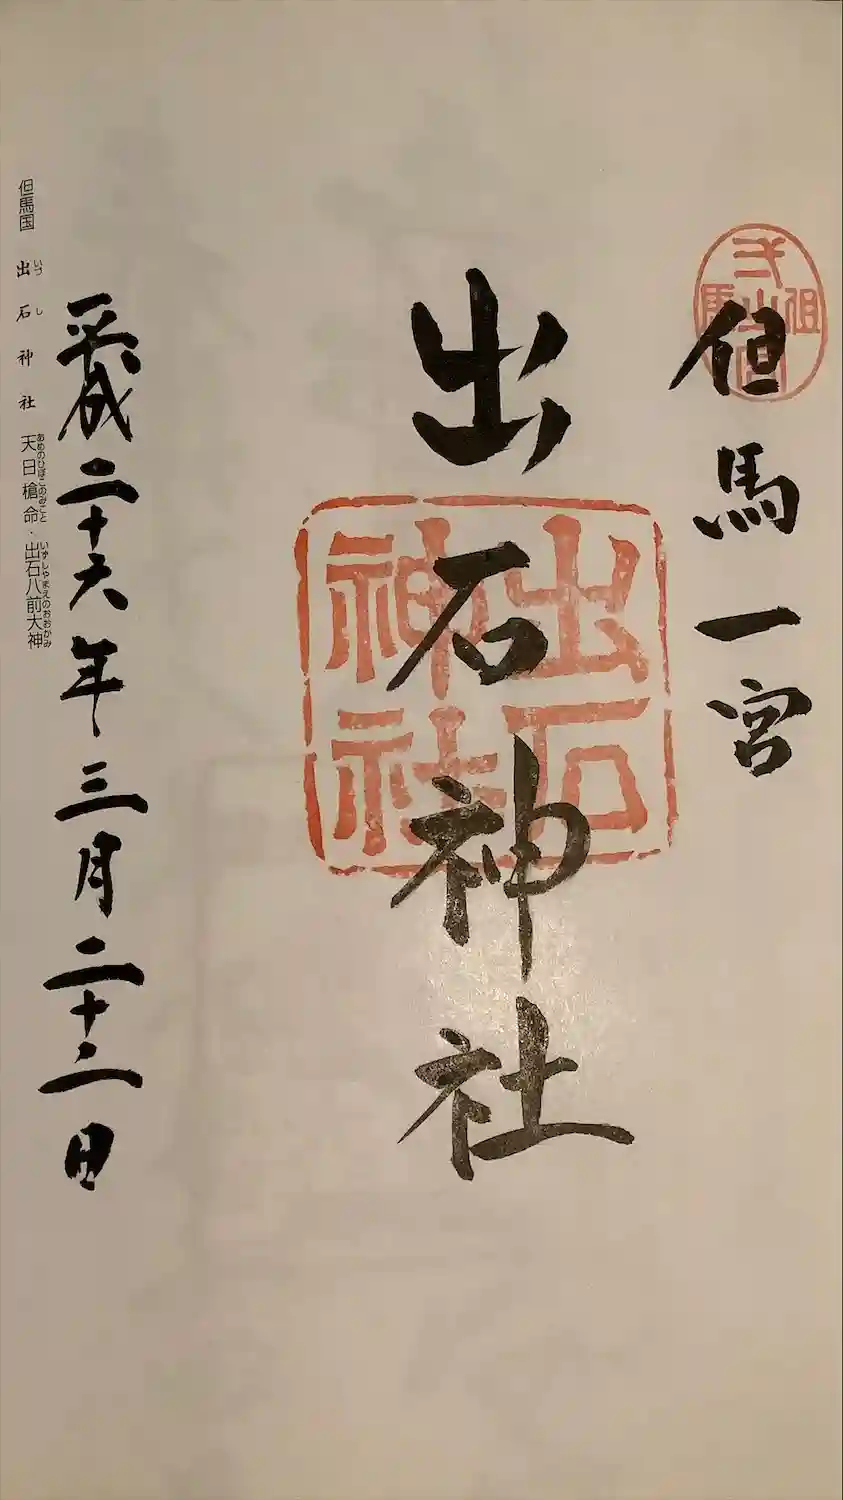 但馬一宮
出石神社
出石神社
平成二十六年三月二十二日
但馬国 出石神社 天日槍命・出石八前大神
いづし
あめのひぼこのみこと
いずしやまえのおおかみ